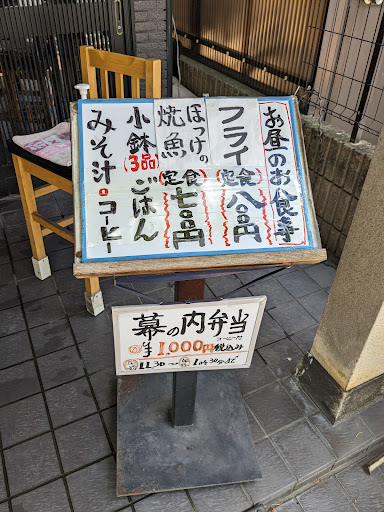 お昼のお食事
フライ定食 八〇〇円
ほっけの
焼魚定食 七〇〇円
小鉢(3品)ごはん
みそ汁・コーヒー
幕の内弁当
コーヒー付
1,000円税込み
11:30〜